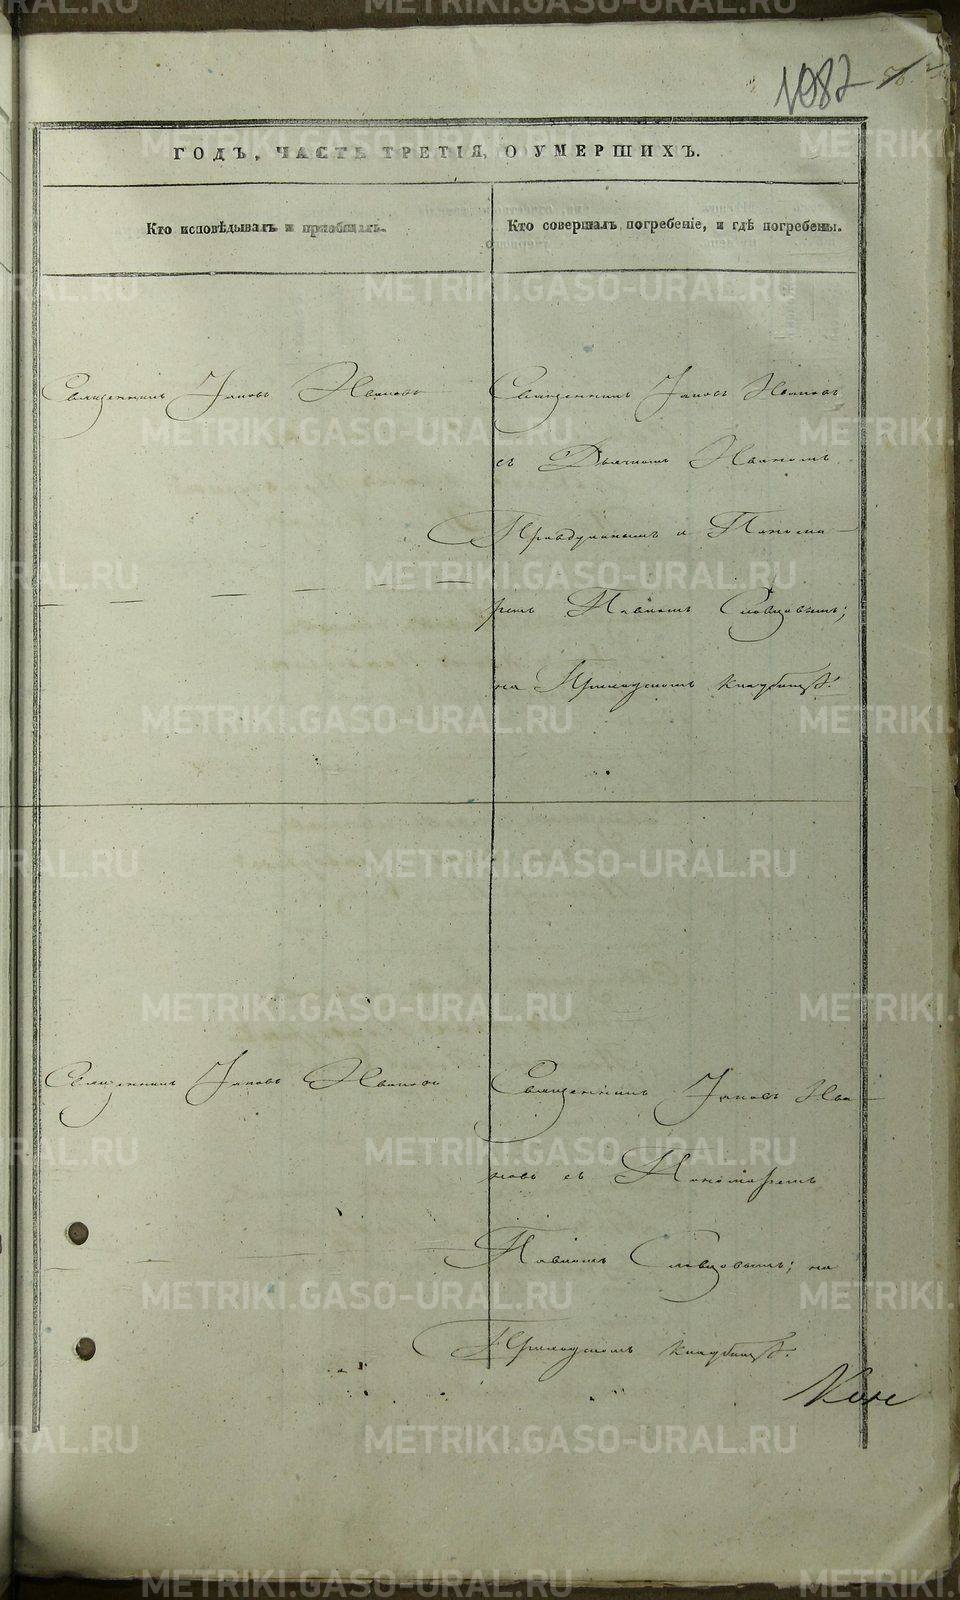 1082
ГОДЪ, ЧАСТЬ ТРЕТІЯ, О УМЕРШИХЪ.
Кто исповѣдывалъ и пріобщалъ.
Кто совершалъ погребеніе, и гдѣ погребены.
Священникъ Іаковъ Ивановъ
Священникъ Іаковъ Ивановъ
съ Дьячкомъ Иваномъ
и Понома-
ремъ Павломъ Словцовымъ;
на Приходскомъ кладбищѣ.
Священникъ Іаковъ Ивановъ
Священникъ Іаковъ Ива-
новъ съ Пономаремъ
Павломъ Словцовымъ; на
Приходскомъ кладбищѣ.
METRIKI.GASO-URAL.RU